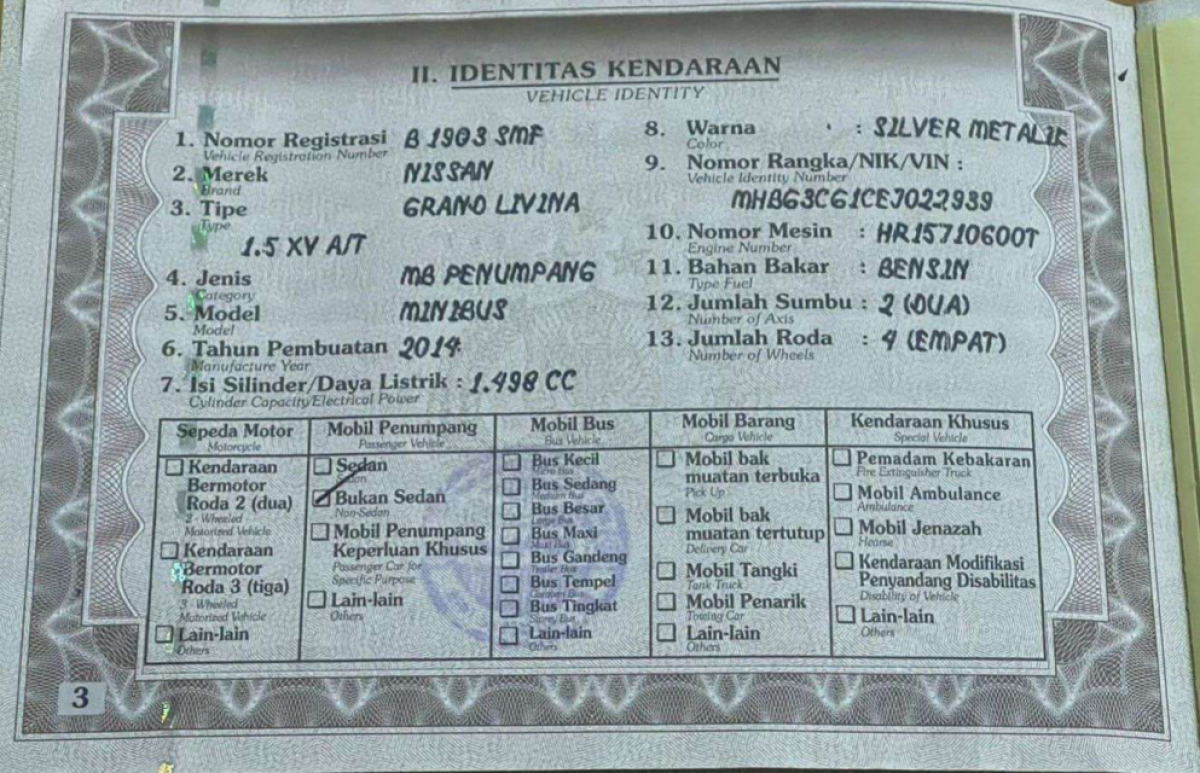 II. IDENTITAS KENDARAAN
VEHICLE IDENTITY
1. Nomor Registrasi B 1903 SMF
Vehicle Registration Number
2. Merek NISSAN
Brand
3. Tipe GRAND LIVINA
Type
1.5 XV A/T
4. Jenis MB PENUMPANG
Category
5. Model MINIBUS
Model
6. Tahun Pembuatan 2014
Manufacture Year
7. Isi Silinder/Daya Listrik : 1.498 CC
Cylinder Capacity/Electrical Power
8. Warna : SILVER METALIK
Color
9. Nomor Rangka/NIK/VIN :
Vehicle Identity Number
MHBG3CG1CEJ022939
10. Nomor Mesin : HR15710600T
Engine Number
11. Bahan Bakar : BENSIN
Type Fuel
12. Jumlah Sumbu : 2 (DUA)
Number of Axis
13. Jumlah Roda : 4 (EMPAT)
Number of Wheels
Sepeda Motor
Motorcycle
Kendaraan
Bermotor
Roda 2 (dua)
2 - Wheeled
Motorized Vehicle
Kendaraan
Bermotor
Roda 3 (tiga)
3 - Wheeled
Motorized Vehicle
Lain-lain
Others
Mobil Penumpang
Passenger Vehicle
Sedan
Bukan Sedan
Non-Sedan
Mobil Penumpang
Keperluan Khusus
Passenger Car for
Specific Purpose
Lain-lain
Others
Mobil Bus
Bus Vehicle
Bus Kecil
Micro Bus
Bus Sedang
Medium Bus
Bus Besar
Large Bus
Bus Maxi
Maxi Bus
Bus Gandeng
Trailer Bus
Bus Tempel
Bus Tingkat
Lain-lain
Others
Mobil Barang
Cargo Vehicle
Mobil bak
muatan terbuka
Pick Up
Mobil bak
muatan tertutup
Delivery Car
Mobil Tangki
Tank Truck
Mobil Penarik
Towing Car
Lain-lain
Others
Kendaraan Khusus
Special Vehicle
Pemadam Kebakaran
Fire Extinguisher Truck
Mobil Ambulance
Ambulance
Mobil Jenazah
Hearse
Kendaraan Modifikasi
Penyandang Disabilitas
Disability of Vehicle
Lain-lain
Others
3